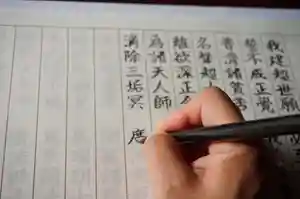 我建超世願
誓不成正覚
普済諸貧苦
名聲超
離欲深正
為諸天人師
消除三垢冥